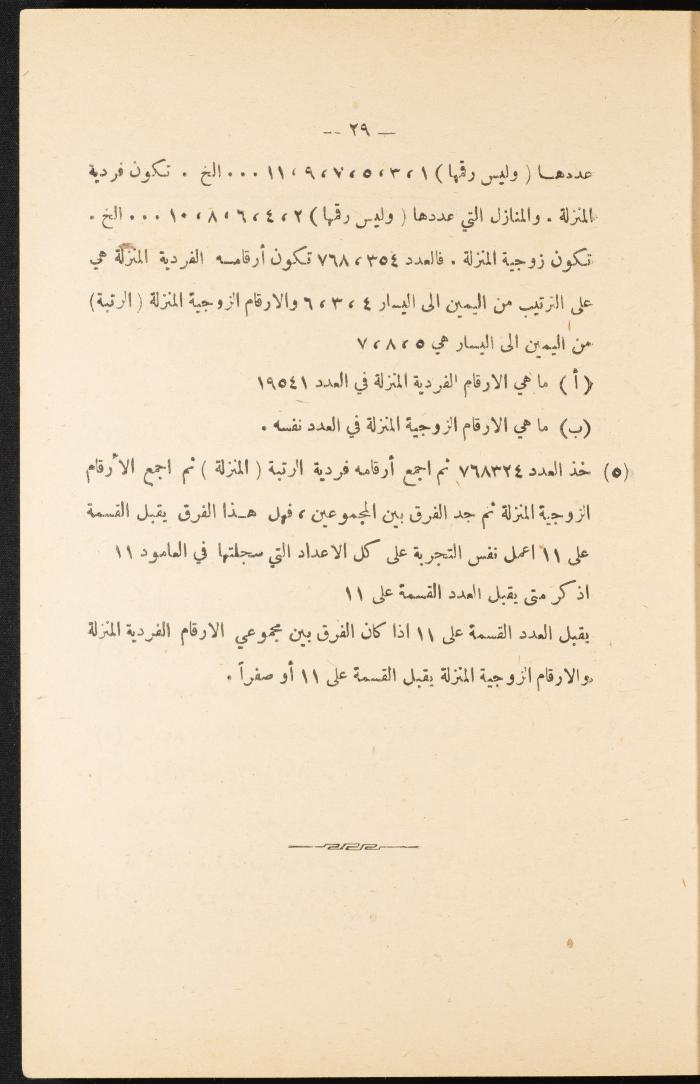 — ٢٩ —
عددهــا ( وليس رقمها ) ١ ، ٣ ، ٥ ، ٧ ، ٩ ، ١١ ٠٠٠ الخ . تكون فردية
المنزلة . والمنازل التي عددها ( وليس رقمها ) ٢ ، ٤ ، ٦ ، ٨ ، ١٠ ٠٠٠ الخ .
تكون زوجية المنزلة . فالعدد ٣٥٤ ، ٧٦٨ تكون أرقامــه الفردية المنزلة هي
على الترتيب من اليمين الى اليسار ٤ ، ٣ ، ٦ والارقام الزوجية المنزلة ( الرتبة )
من اليمين الى اليسار هي ٥ ، ٨ ، ٧
( أ ) ما هي الارقام الفردية المنزلة في العدد ١٩٥٤١
(ب) ما هي الارقام الزوجية المنزلة في العدد نفسه .
(٥) خذ العدد ٧٦٨٣٢٤ ثم اجمع أرقامه فردية الرتبة ( المنزلة ) ثم اجمع الأرقام
الزوجية المنزلة ثم جد الفرق بين المجموعين ، فهل هــذا الفرق يقبل القسمة
على ١١ اعمل نفس التجربة على كل الاعداد التي سجلتها في العامود ١١
اذكر متى يقبل العدد القسمة على ١١
يقبل العدد القسمة على ١١ اذا كان الفرق بين مجموعي الارقام الفردية المنزلة
والارقام الزوجية المنزلة يقبل القسمة على ١١ أو صفراً .